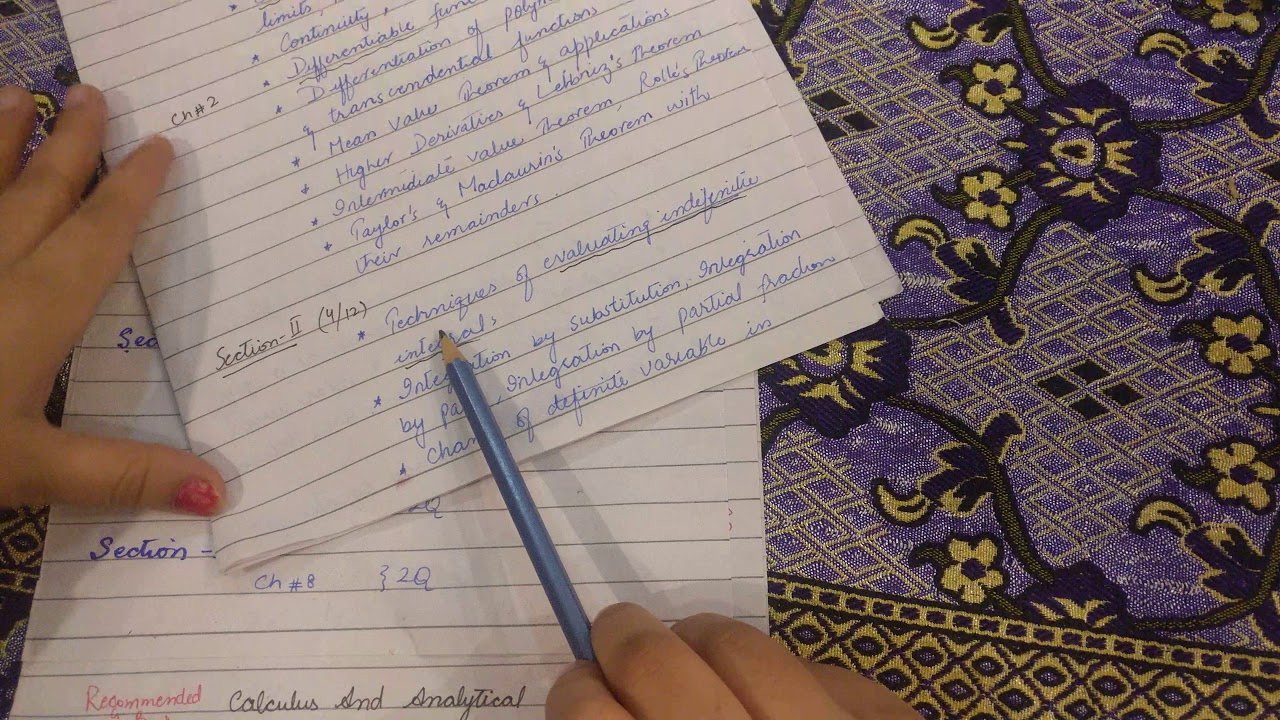 limits
* Continuity,
* Differentiable
* Differentiation of
& transcendental functions
Ch # 2
* Mean Value Theorem & applications
* Higher Derivatives & Lebbniz's Theorem
* Intermidiate value Theorem, Rolle's Theorem
* Taylor's & Maclaurin's Theorem with
their remainders.
Section-II (4/12)
* Techniques of evaluating indefinite
* Integration by substitution, Integration
by , Integration by partial fraction
* of definite variable in
2Q
Section -
Ch # 8 } 2Q
Recommended Calculus And Analytical